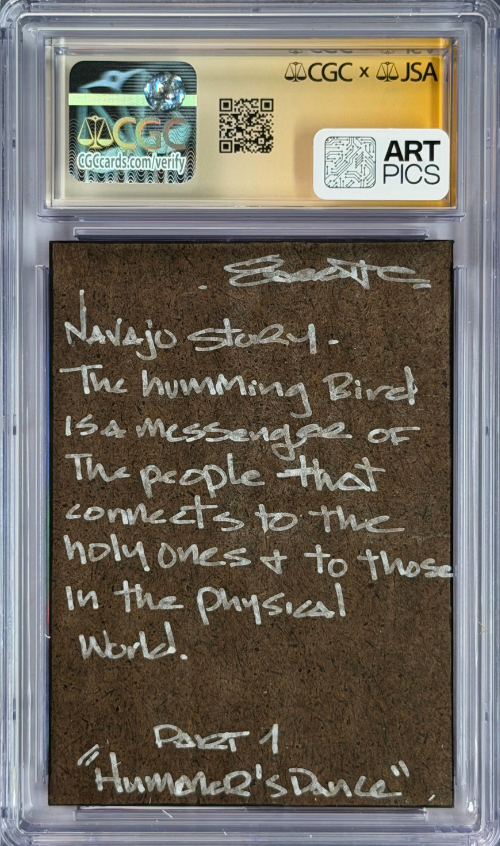 CGC x JSA
CGC
CGCcards.com/verify
ART
PICS
Navajo story.
The humming Bird
is a messenger of
The people that
connects to the
holy ones & to those
in the physical
World.
PART 1
"Hummer's Dance"